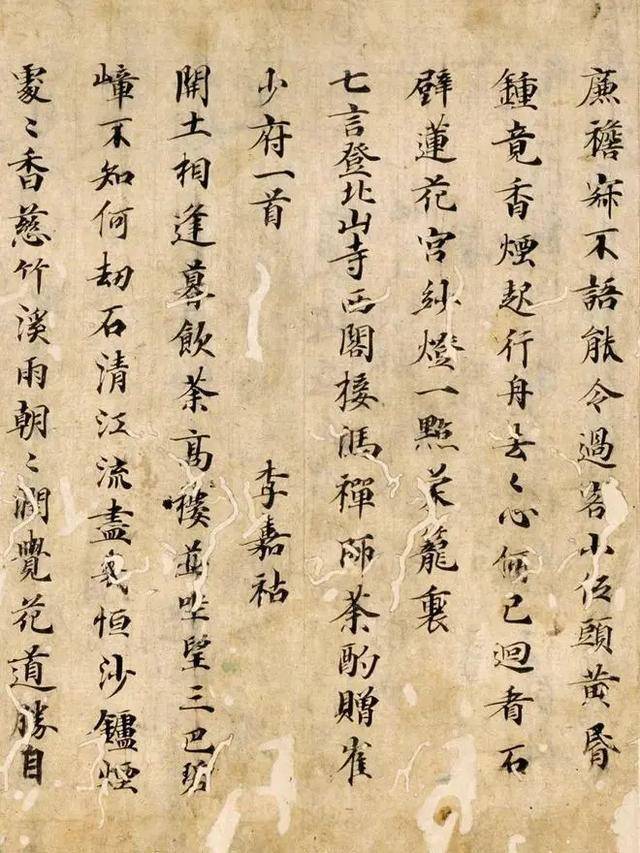 廉襜寂不語能令過客小低頭黄昏
鍾竟香煙起行舟去〻心何已迴看石
壁蓮花宮紗燈一點籠裏
七言登北山寺西閣接馮禪師茶酌贈崔
少府一首 李嘉祐
開土相逢暮飲茶高樓並坐望三巴碧
嶂不知何劫石清江流盡幾恒沙鑪煙
處〻香慈竹溪雨朝〻潤覺花道勝自